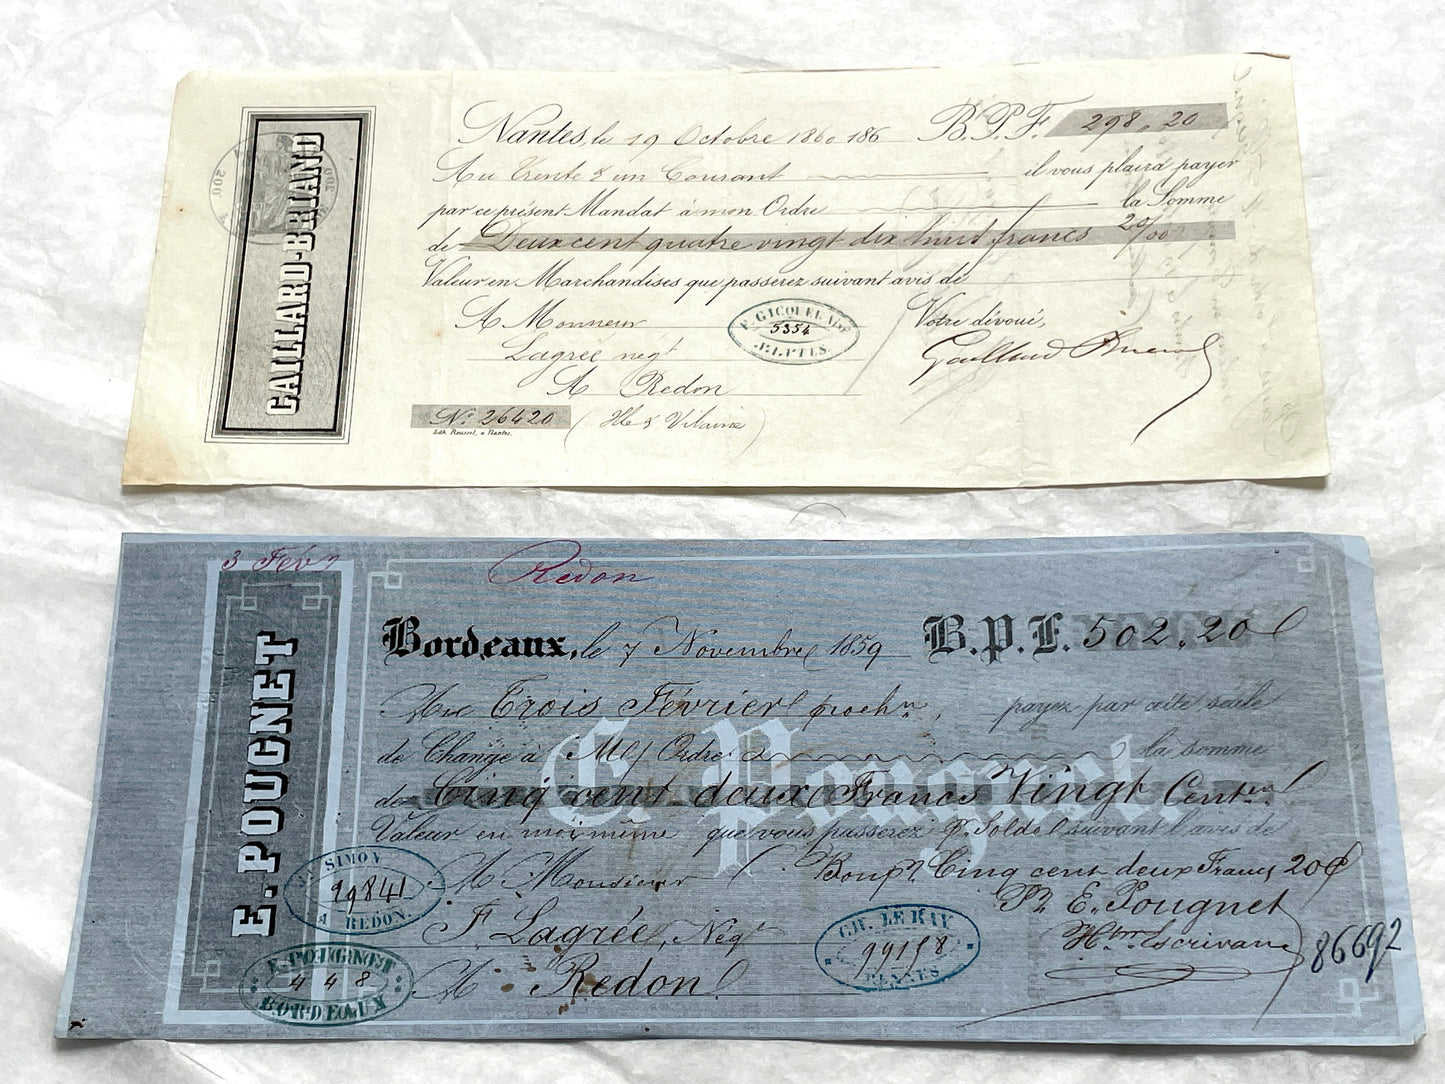 CAILLARD-BRIAND
200
Nantes, le 19 Octobre 1860 186 B.P.F. 298,20
Au Trente & un Courant il vous plaira payer
par ce présent Mandat à mon Ordre la Somme
de Deux cent quatre vingt dix huit francs 20/00
Valeur en Marchandises que passerez suivant avis de
A Monsieur Votre dévoué,
E. GICQUEL
5354
NANTES.
Lagrée negt
A Redon
No. 26420 (Ille & Vilaine)
Lith. Roussel, a Nantes.
3 Fév
Redon
E. POUGNET
Bordeaux, le 7 Novembre 1859 B.P.F. 502,20
Au Trois Février proch.n, payez par cette seule
de Change à M/ Ordre la somme
de Cinq cent deux Francs Vingt Cent.es
E. Pougnet
Valeur en moi même que vous passerez Pr. Solde suivant l'avis de
A Monsieur Bon pr. Cinq cent deux Francs 20
SIMON
29841
A REDON.
F. Lagrée, Negt Pr E. Pougnet
CH. LE RAY
99198
RENNES
A Redon
E. POUGNET
448
BORDEAUX
86692